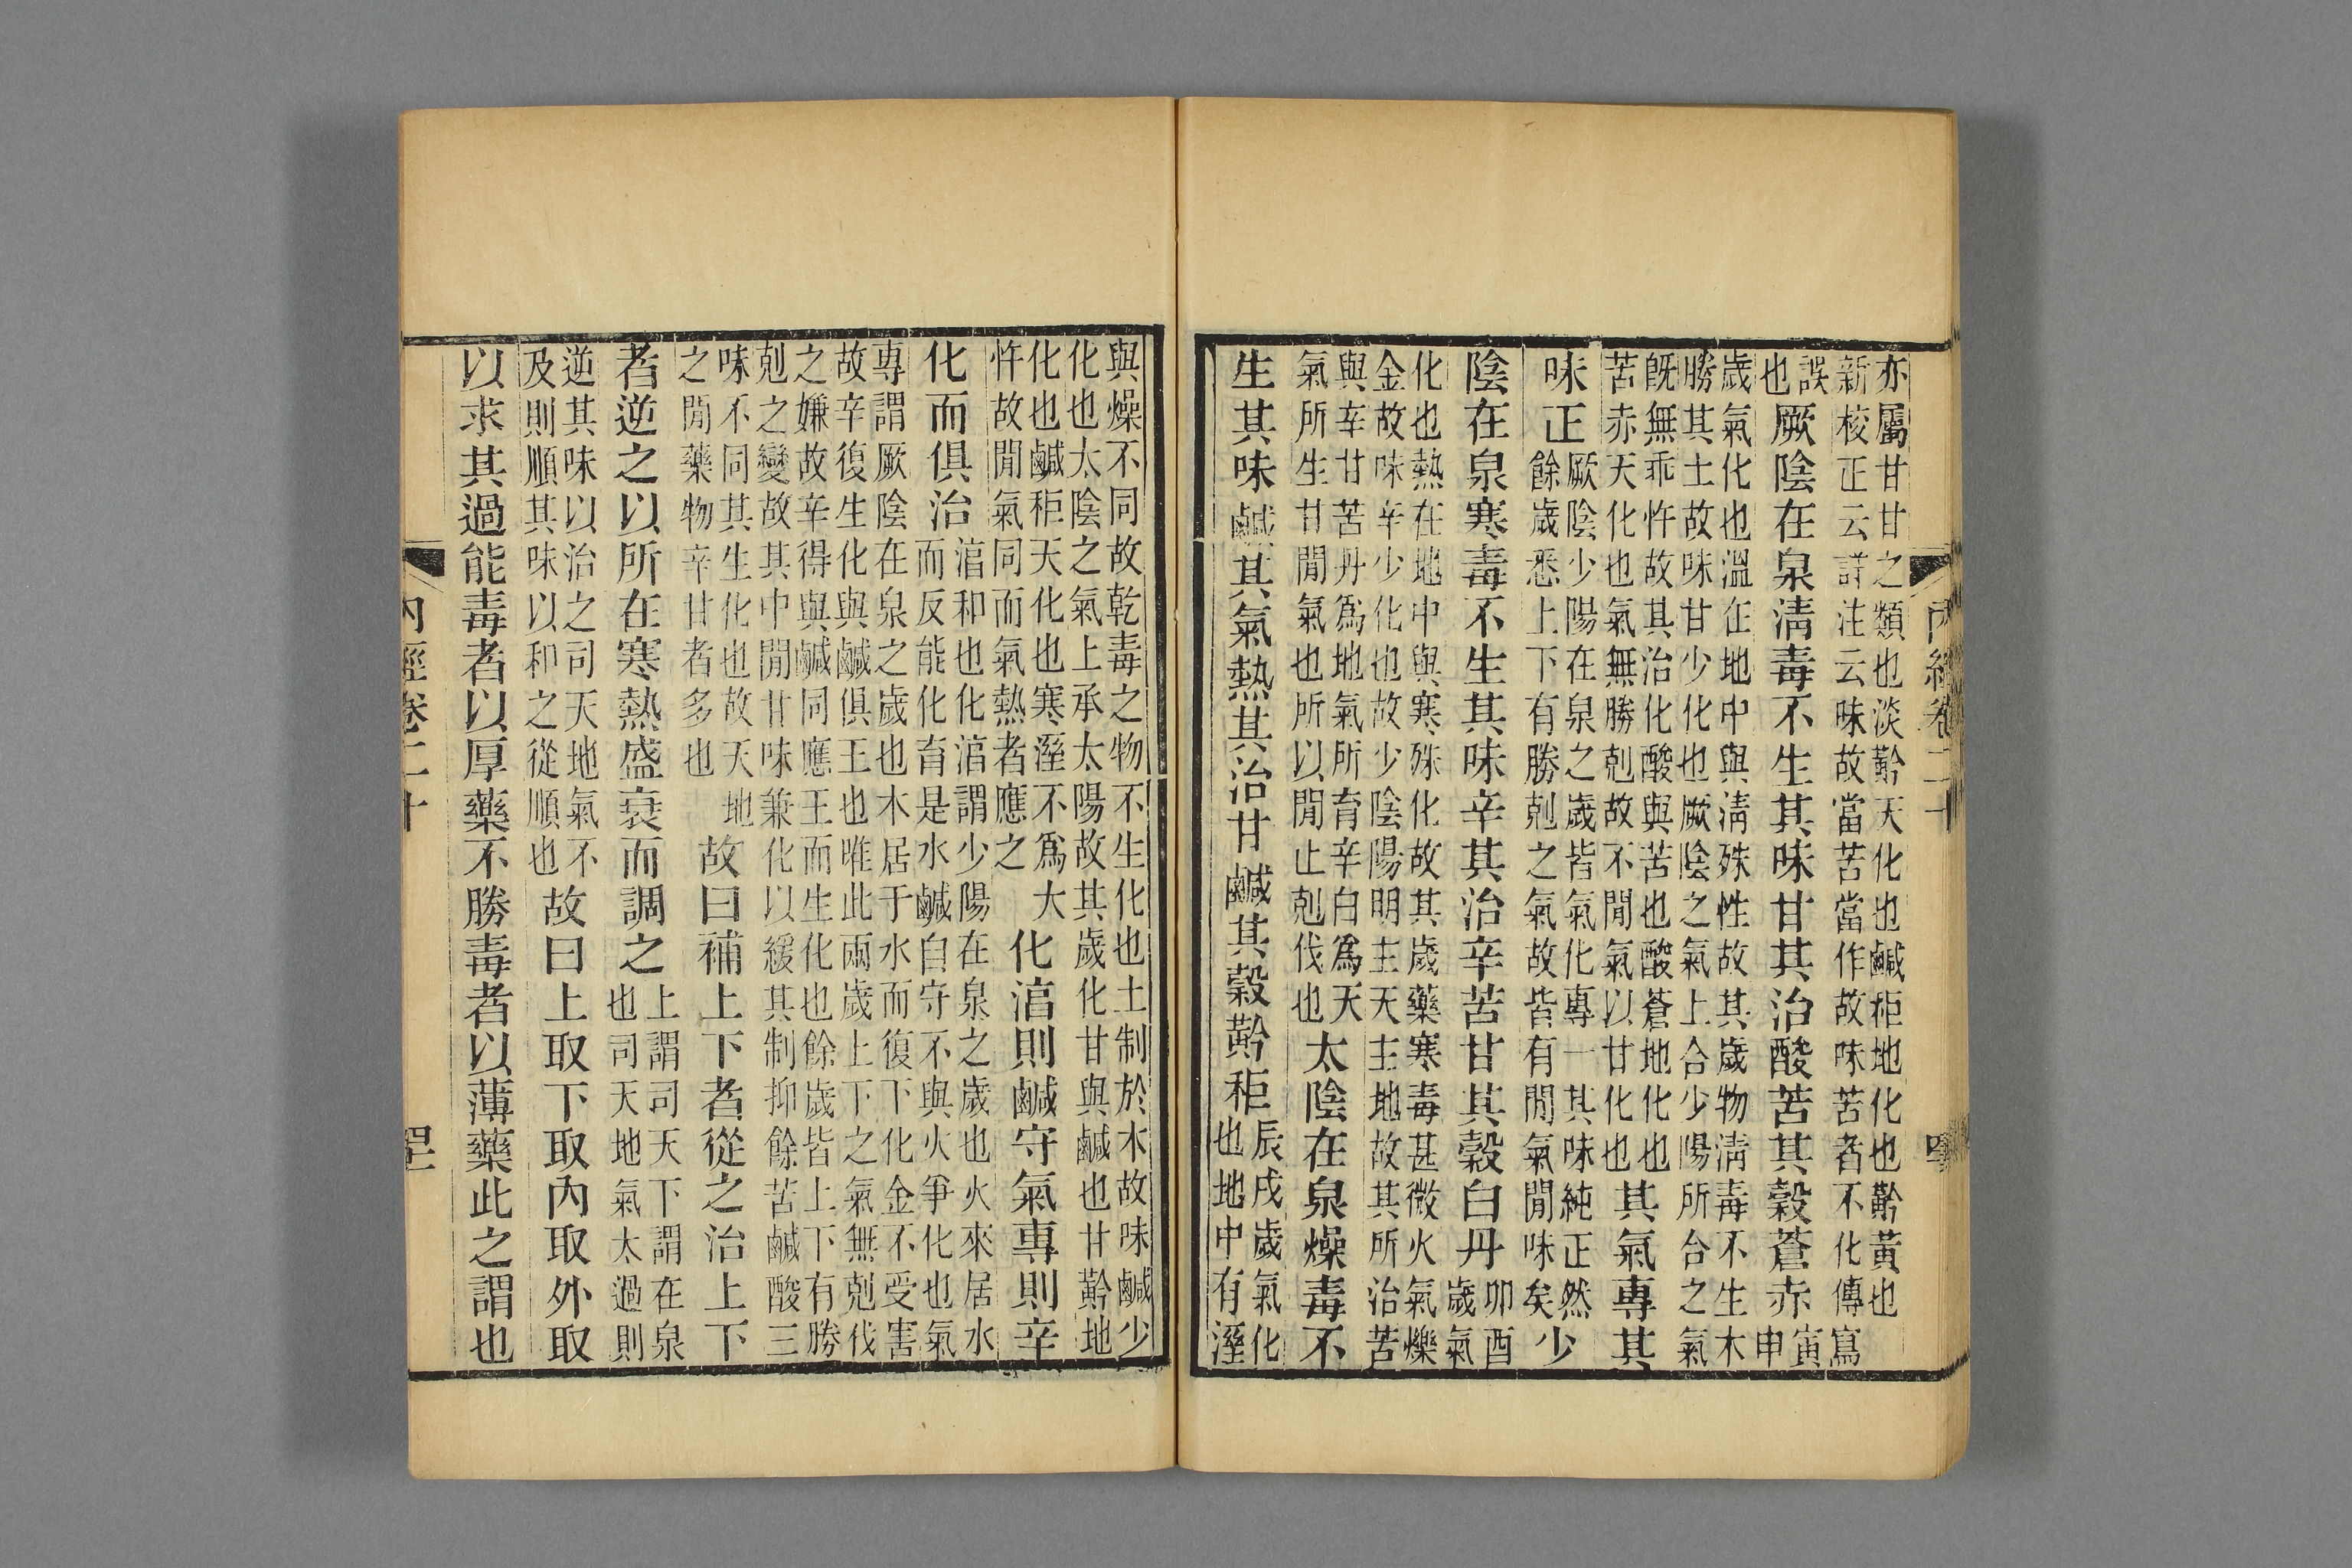 內經卷二十
亦屬甘甘之類也淡黅天化也鹹秬地化也黅黃也
新校正云詳注云味故當苦當作故味苦者不化傳寫
誤也厥陰在泉淸毒不生其味甘其治酸苦其穀蒼赤寅申
歲氣化也溫在地中與淸殊性故其歲物淸毒不生木
勝其土故味甘少化也厥陰之氣上合少陽所合之氣
旣無乖忤故其治化酸與苦也酸蒼地化也
苦赤天化也氣無勝剋故不閒氣以甘化也其氣專其
味正厥陰少陽在泉之歲皆氣化專一其味純正然
餘歲悉上下有勝剋之氣故皆有閒氣閒味矣少
陰在泉寒毒不生其味辛其治辛苦甘其穀白丹卯酉歲氣
化也熱在地中與寒殊化故其歲藥寒毒甚微火氣爍
金故味辛少化也故少陰陽明主天主地故其所治苦
與辛甘苦丹爲地氣所育辛白爲天
氣所生甘閒氣也所以閒止剋伐也太陰在泉燥毒不
生其味鹹其氣熱其治甘鹹其穀黅秬辰戌歲氣化
也地中有溼
與燥不同故乾毒之物不生化也土制於水故味鹹少
化也太陰之氣上承太陽故其歲化甘與鹹也甘黅地
化也鹹秬天化也寒溼不爲大
忤故閒氣同而氣熱者應之化湻則鹹守氣專則辛
化而俱治湻和也化湻謂少陽在泉之歲也火來居水
而反能化育是水鹹自守不與火爭化也氣
專謂厥陰在泉之歲也木居于水而復下化金不受害
故辛復生化與鹹俱王也唯此兩歲上下之氣無剋伐
之嫌故辛得與鹹同應王而生化也餘歲皆上下有勝
剋之變故其中閒甘味兼化以緩其制抑餘苦鹹酸三
味不同其生化也故天地
之閒藥物辛甘者多也故曰補上下者從之治上下
者逆之以所在寒熱盛衰而調之上謂司天下謂在泉
也司天地氣太過則
逆其味以治之司天地氣不
及則順其味以和之從順也故曰上取下取內取外取
以求其過能毒者以厚藥不勝毒者以薄藥此之謂也
內經卷二十